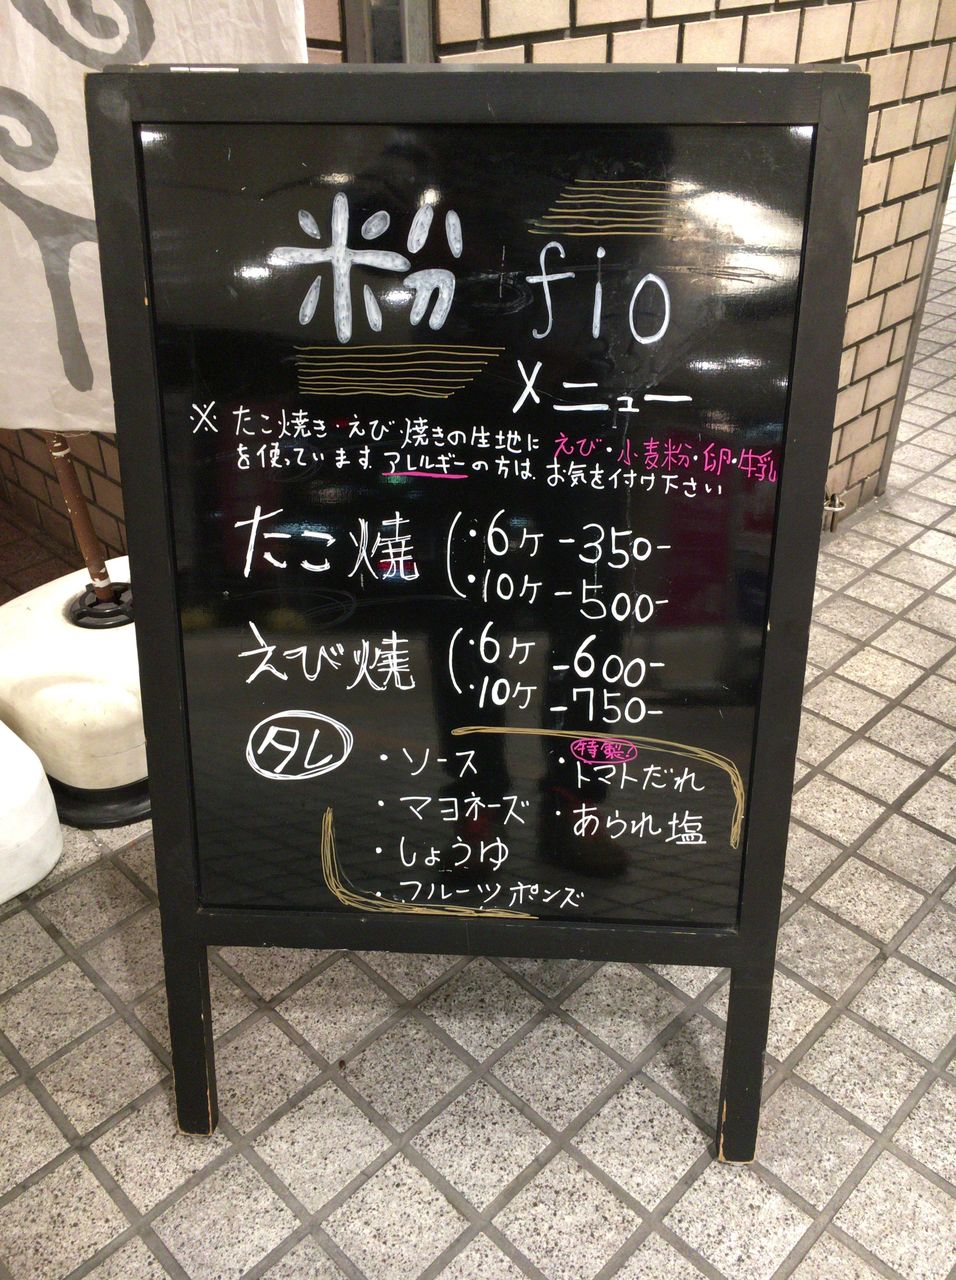 粉 fio
メニュー
※ たこ焼き・えび焼きの生地に えび・小麦粉・卵・牛乳
を使っています。アレルギーの方は、お気を付け下さい
たこ焼 (・6ヶ -350-
・10ヶ -500-
えび焼 (・6ヶ -600-
・10ヶ -750-
タレ
・ソース
・マヨネーズ
・しょうゆ
・フルーツポンズ
特製!
・トマトだれ
・あられ塩